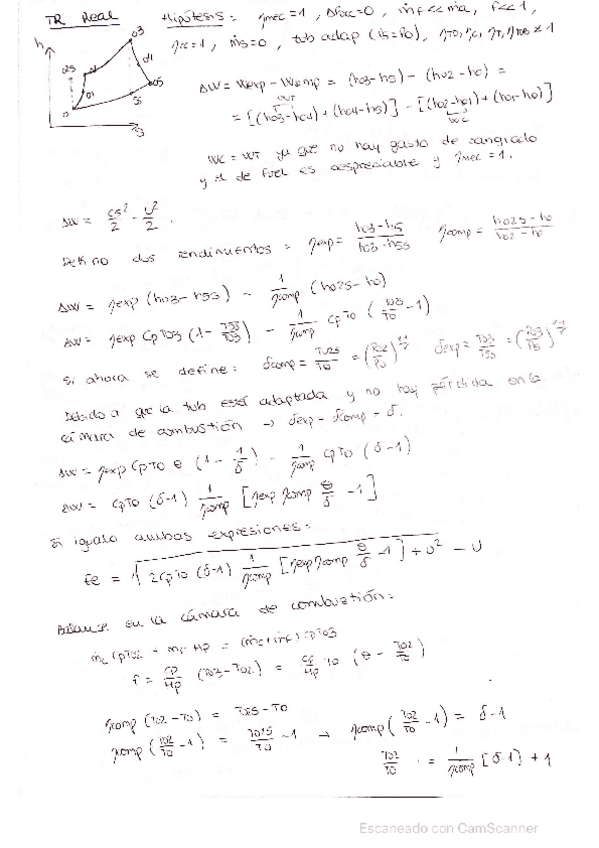 TR Real
Hipótesis: ηmec=1, ΔPocc=0, ṁf<<ṁa, f<<1,
ηcc=1, ṁs=0, tob adap (Ps=P0), ηD, ηC, ηT, ηTOB≠1
h
s
03
04
05
5s
02s
01
0
ΔW = Wexp - Wcomp = (h03-h5) - (h02-h0) =
= [(h03-h04)+(h04-h5)] - [(h02-h01)+(h01-h0)]
WT
WC
WC = WT ya que no hay gasto de sangrado
y el de fuel es despreciable y ηmec=1.
ΔW = CS²/2 - U²/2.
Defino dos rendimientos: ηexp = (h03-h5)/(h03-h5s) ηcomp = (h02s-h0)/(h02-h0)
ΔW = ηexp (h03-h5s) - 1/ηcomp (h02s-h0)
ΔW = ηexp CpT03 (1 - T5s/T03) - 1/ηcomp CpT0 (T02s/T0 - 1)
Si ahora se define: δcomp = T02s/T0 = (P02/P0)^((γ-1)/γ) δexp = T03/T5s = (P03/P5)^((γ-1)/γ)
Debido a que la tob está adaptada y no hay pérdida en la
cámara de combustión → δexp = δcomp = δ.
ΔW = ηexp CpT0 θ (1 - 1/δ) - 1/ηcomp CpT0 (δ-1)
ΔW = CpT0 (δ-1) 1/ηcomp [ηexp ηcomp θ/δ - 1]
Si igualo ambas expresiones:
Fe = √(2CpT0 (δ-1) 1/ηcomp [ηexp ηcomp θ/δ - 1] + U²) - U
Balance en la cámara de combustión:
ṁc CpT02 + ṁf Hp = (ṁc+ṁf) CpT03
f = Cp/Hp (T03-T02) = Cp/Hp T0 (θ - T02/T0)
ηcomp (T02-T0) = T02s-T0
ηcomp (T02/T0 - 1) = T02s/T0 - 1 → ηcomp (T02/T0 - 1) = δ-1
T02/T0 = 1/ηcomp [δ-1] + 1
Escaneado con CamScanner